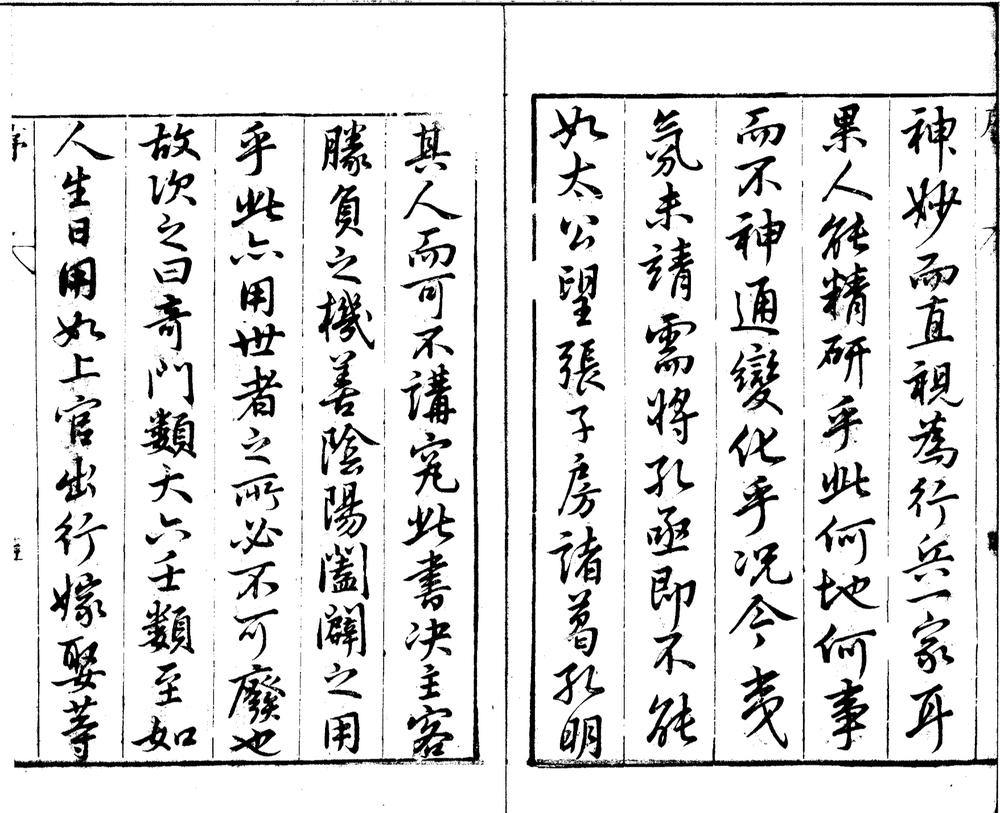 神妙而直視為行兵一家耳
果人能精研乎此何地何事
而不神通變化乎況今夷
氛未靖需將孔亟即不能
如太公望張子房諸葛孔明
其人而可不講究此書決主客
勝負之機善陰陽闔闢之用
乎此六用世者之所必不可廢也
故次之曰奇門類大六壬類至如
人生日用如上官出行嫁娶等
序